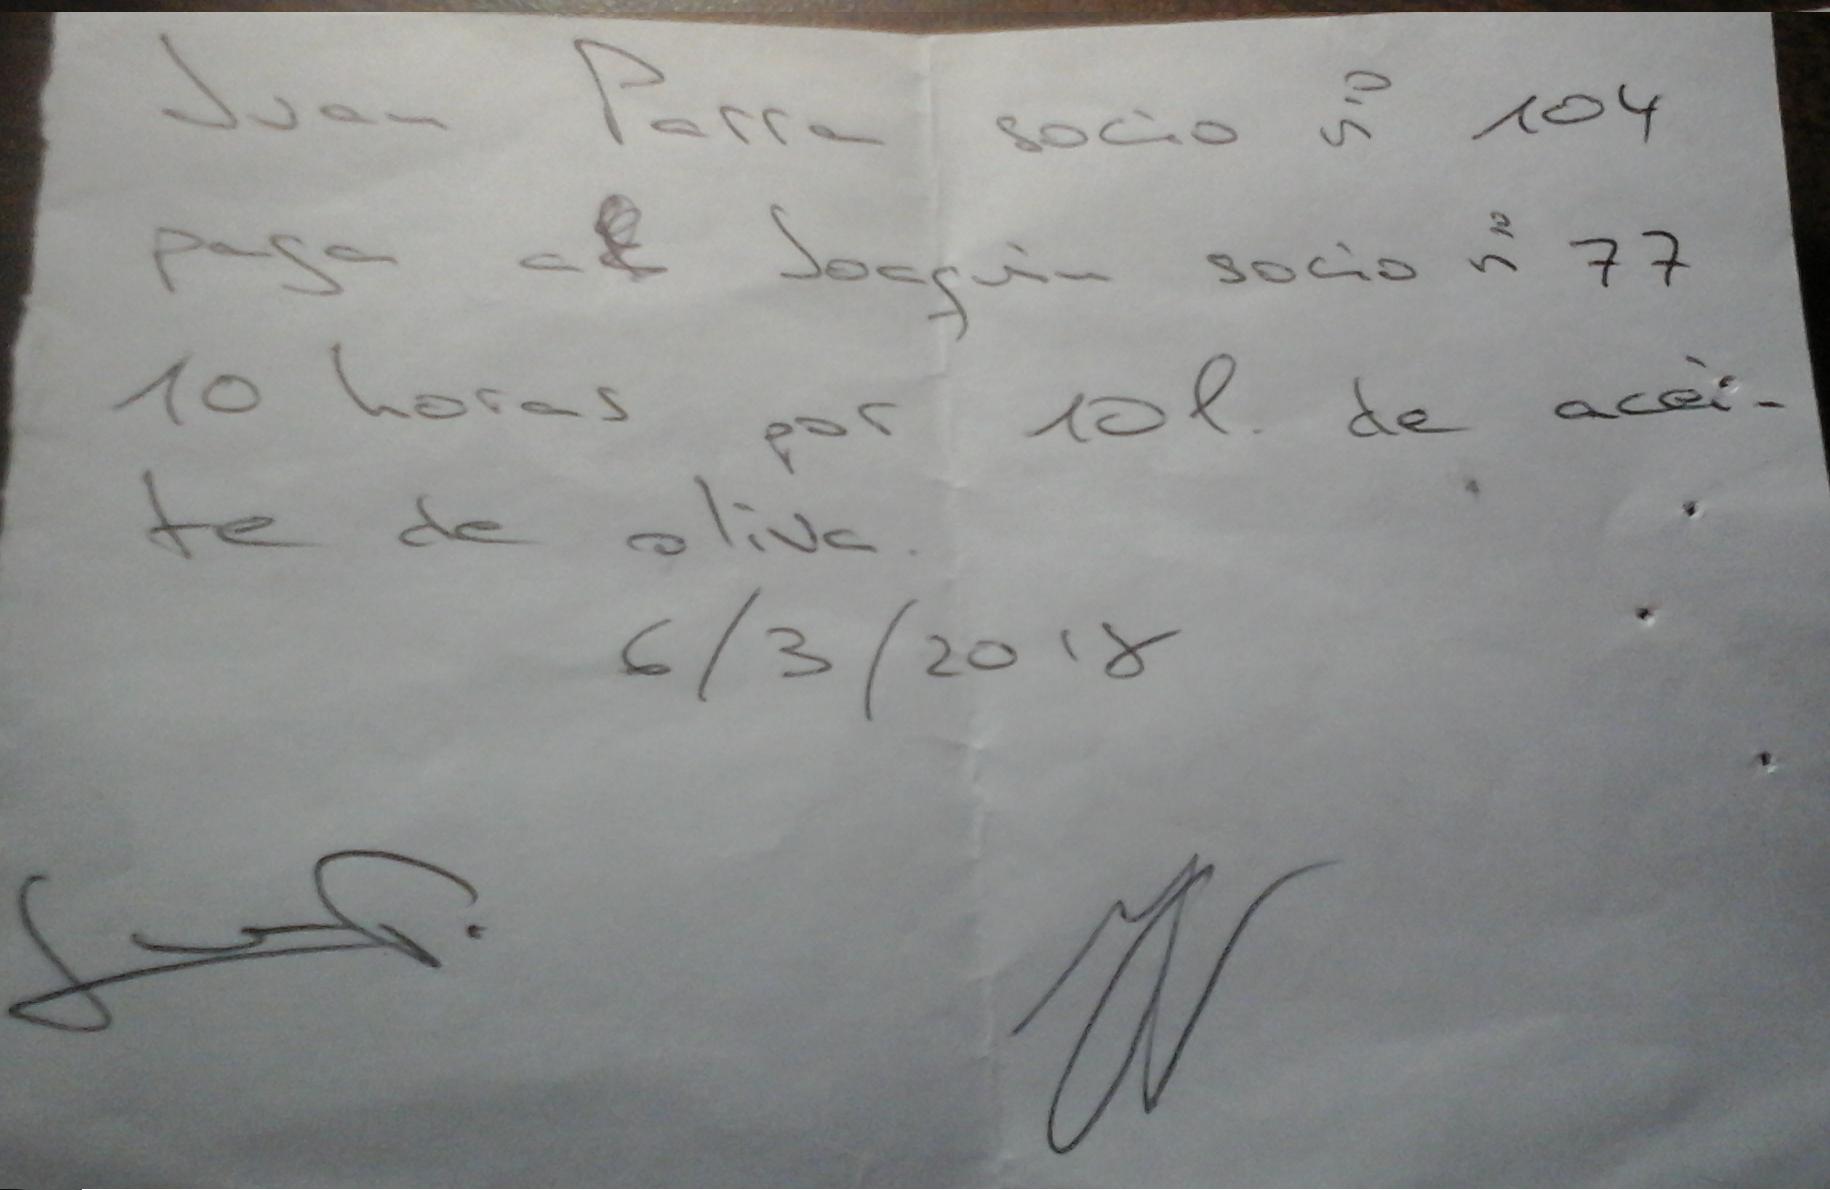 Juan Parra socio nº 104
paga a Joaquin socio nº 77
10 horas por 10 l. de acei-
te de oliva.
6/3/2018